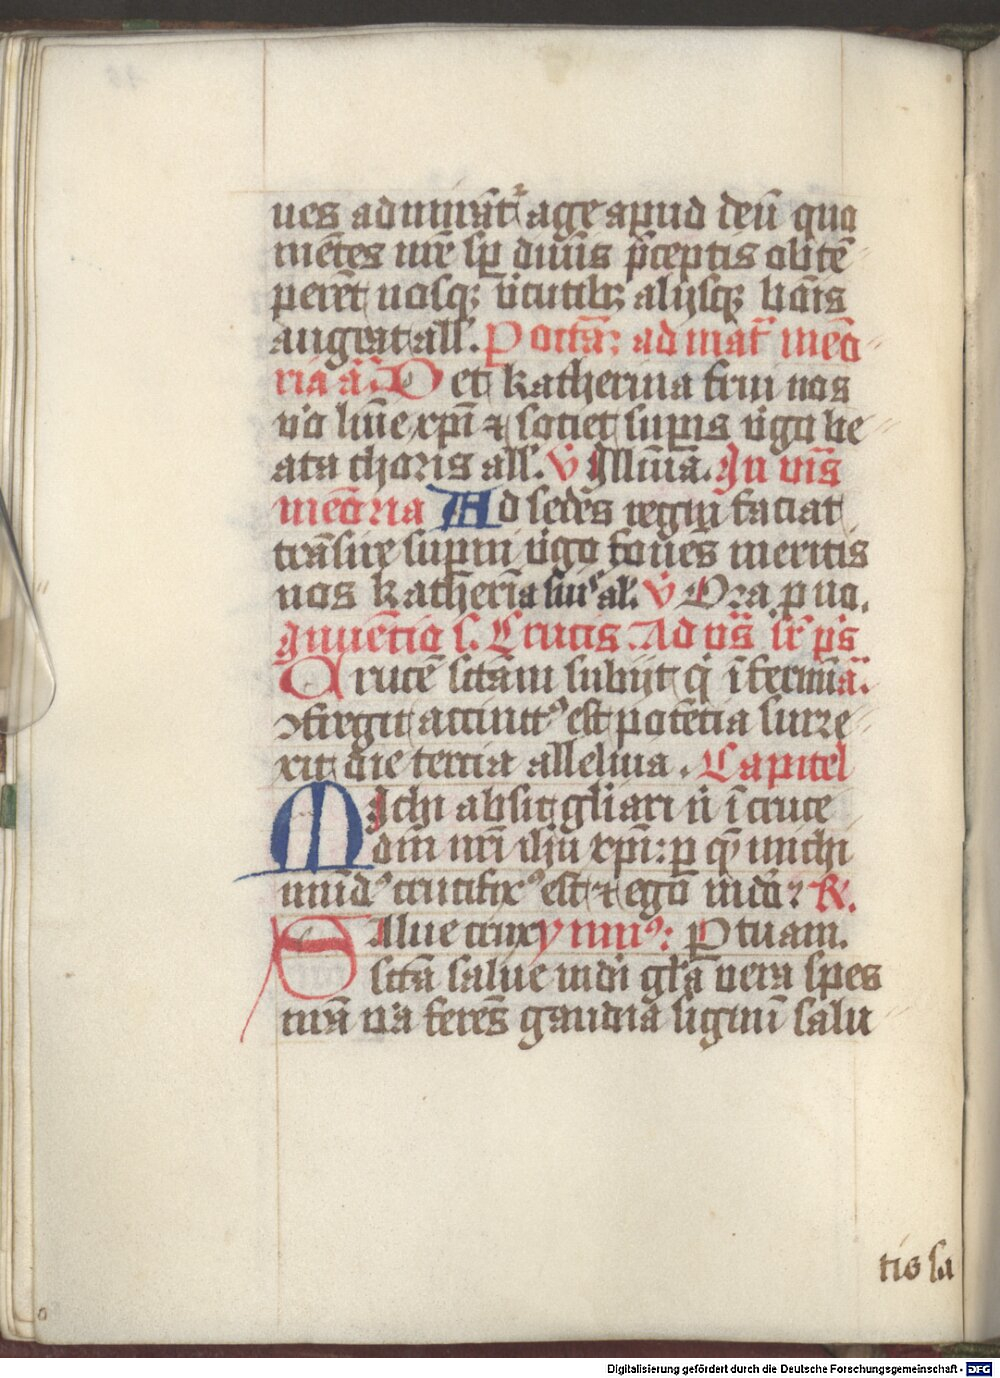 ues admirāt᷑ age apud deū quo
mētes nr̄e sp̄ diuīs p̄ceptis obtē
perēt nosq; v̄tutib; alijsq; bōis
augeat all̄. Portā: ad mat᷑ meō
ria aā. D et katherina frui nos
v̄o lūīe xp̄i ⁊ societ supīs v̄go be
ata choris all̄. V̄ Illīnīa. In vīs
meōria Ad sedēs regnj faciat
trāsire supīni v̄go fouēs meritis
nos Katherīa suis al̄. V̄ Ora p no.
Inuētio s. Crucis. Ad vs̄
Crucē sctām subijt q̄ īfernū aā.
ꝯfregit accinct⁹ est potētia surre
xit die tercia alleluia. Capitel
Michi absit gl̄iari ni ī cruce
dn̄i nr̄i ih̄u xp̄i: p quē michi
mūd⁹ crucifix⁹ est ⁊ ego mūdo R̄.
Salue crux ymnus: P tuam.
sctā salue mūdi gl̄a vera spes
nr̄a v̄a ferēs gaudia signū salu
tis sa
Digitalisierung gefördert durch die Deutsche Forschungsgemeinschaft - DFG